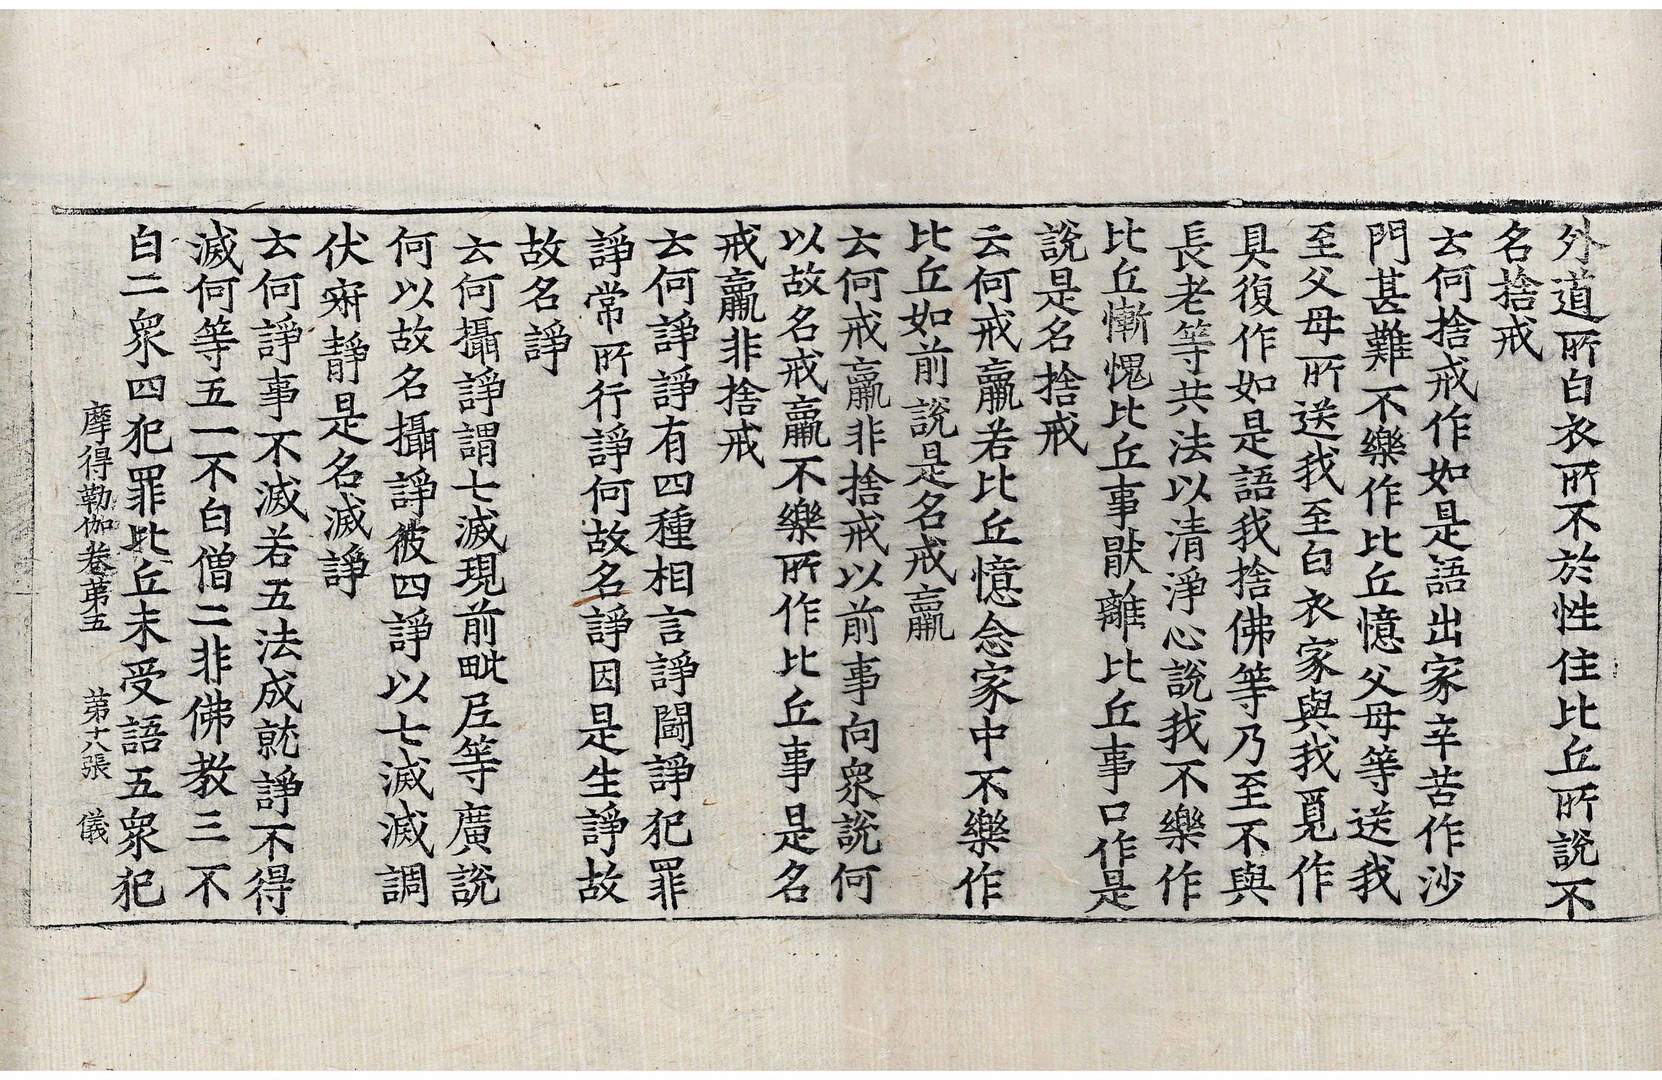 外道所白衣所不於性住比丘所說不
名捨戒
云何捨戒作如是語出家辛苦作沙
門甚難不樂作比丘憶父母等送我
至父母所送我至白衣家與我覓作
具復作如是語我捨佛等乃至不與
長老等共法以清淨心說我不樂作
比丘慚愧比丘事猒離比丘事口作是
說是名捨戒
云何戒羸若比丘憶念家中不樂作
比丘如前說是名戒羸
云何戒羸非捨戒以前事向衆說何
以故名戒羸不樂所作比丘事是名
戒羸非捨戒
云何諍諍有四種相言諍鬪諍犯罪
諍常所行諍何故名諍因是生諍故
故名諍
云何攝諍謂七滅現前毗尼等廣說
何以故名攝諍彼四諍以七滅滅調
伏寂靜是名滅諍
云何諍事不滅若五法成就諍不得
滅何等五一不白僧二非佛教三不
白二衆四犯罪比丘未受語五衆犯
摩得勒伽卷第五 第十八張 儀